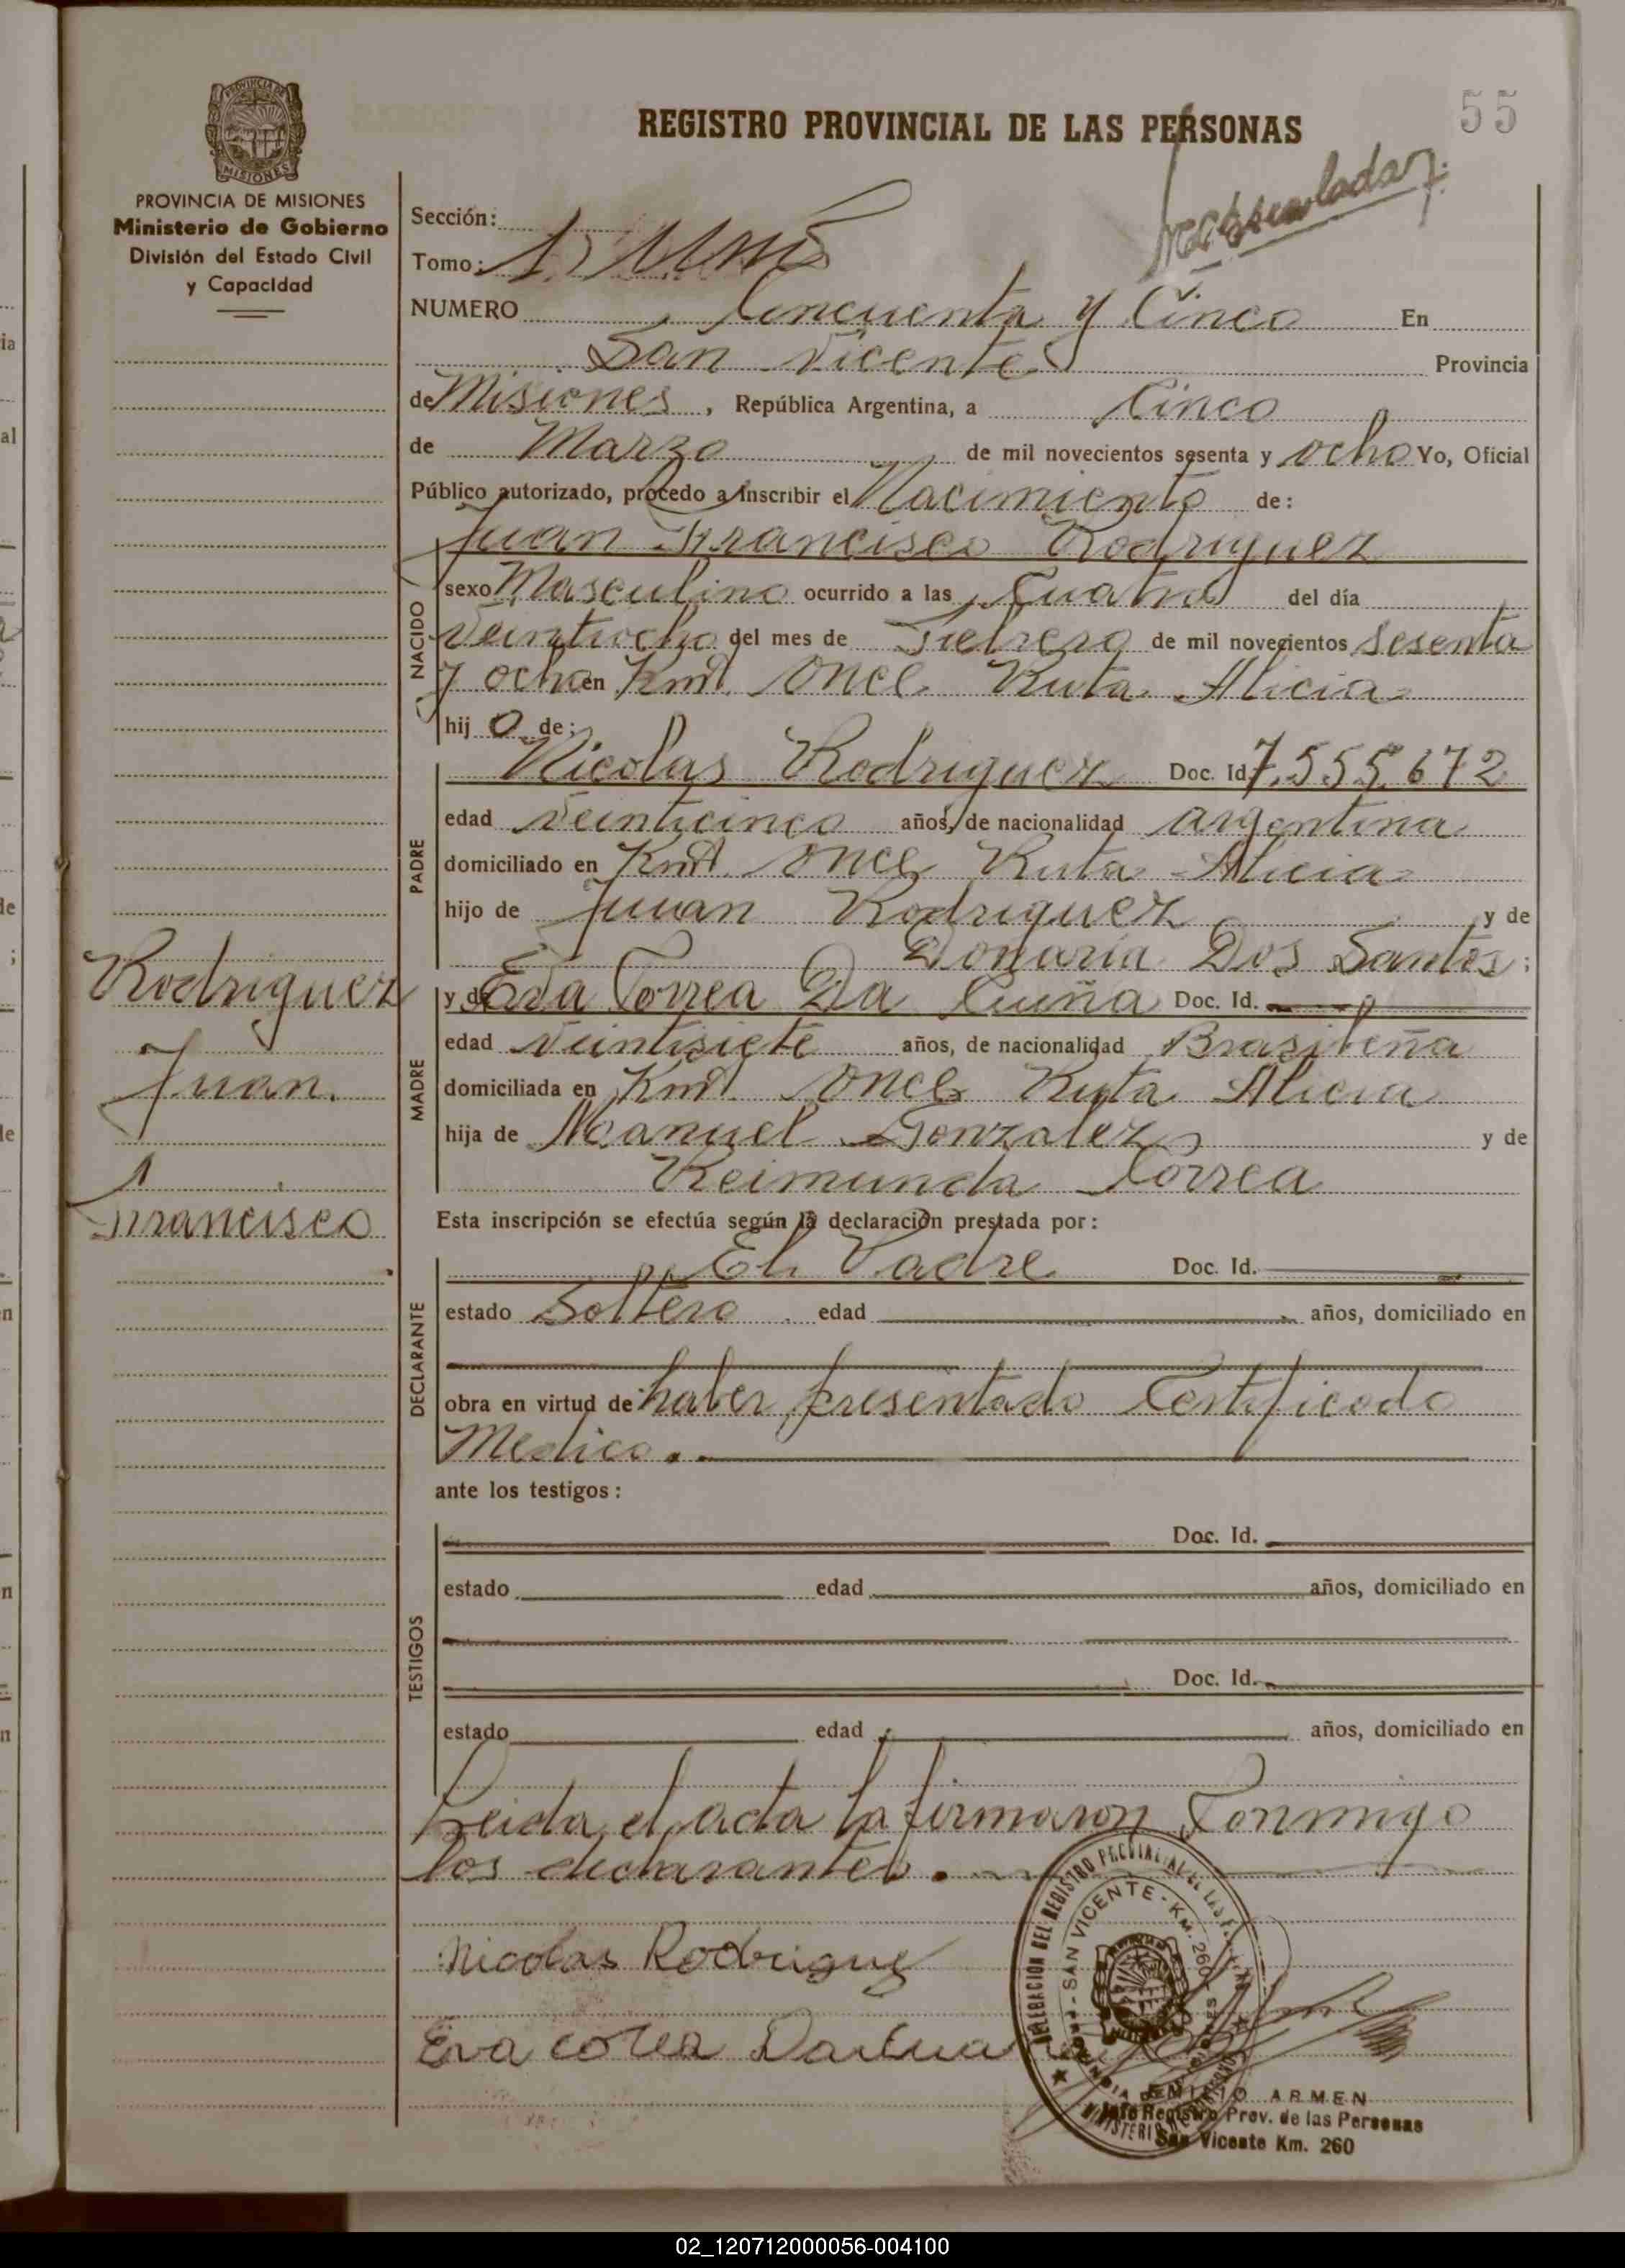 55
REGISTRO PROVINCIAL DE LAS PERSONAS
PROVINCIA DE MISIONES
MISIONES
PROVINCIA DE MISIONES
Ministerio de Gobierno
División del Estado Civil
y Capacidad
Sección:
Tomo:
NUMERO Cincuenta y Cinco En
San Vicente Provincia
de Misiones, República Argentina, a Cinco
de Marzo de mil novecientos sesenta y ocho Yo, Oficial
Público autorizado, procedo a inscribir el Nacimiento de:
Juan Francisco Rodriguez
NACIDO
sexo Masculino ocurrido a las Cuatro del día
Veintiocho del mes de Febrero de mil novecientos sesenta
y ocho en Kmt. Once Ruta Alicia
hijo de:
PADRE
Nicolas Rodriguez Doc. Id. 7.555.672
edad Veinticinco años, de nacionalidad argentina
domiciliado en Kmt. Once Ruta Alicia
hijo de Juan Rodriguez y de
Dos Santos;
Rodriguez
Juan
Francisco
MADRE
y de Eva Correa Da Cuña Doc. Id.
edad Veintisiete años, de nacionalidad Brasileña
domiciliada en Kmt. Once Ruta Alicia
hija de Manuel Gonzalez y de
Reimunda Correa
Esta inscripción se efectúa según la declaración prestada por:
DECLARANTE
El Padre Doc. Id.
estado Soltero edad años, domiciliado en
obra en virtud de haber presentado Certificado
Medico.
ante los testigos:
TESTIGOS
Doc. Id.
estado edad años, domiciliado en
Doc. Id.
estado edad años, domiciliado en
Leida el acta la firmaron Conmigo
los declarantes.
Nicolas Rodriguez
Eva
DELEGACION DEL REGISTRO PROVINCIAL DE LAS
SAN VICENTE - KM. 260
ARMEN
Jefe Registro Prov. de las Personas
San Vicente Km. 260
02_120712000056-004100